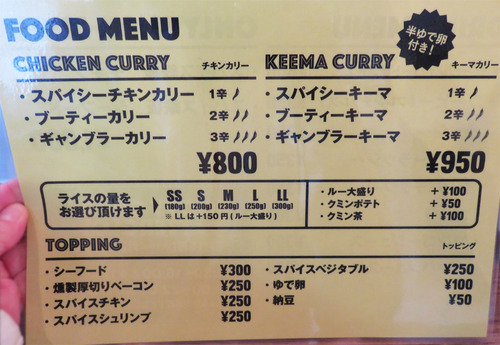 FOOD MENU
半ゆで卵
付き!
CHICKEN CURRY チキンカリー
・スパイシーチキンカリー 1辛
・ブーティーカリー 2辛
・ギャンブラーカリー 3辛
¥800
KEEMA CURRY キーマカリー
・スパイシーキーマ 1辛
・ブーティーキーマ 2辛
・ギャンブラーキーマ 3辛
¥950
ライスの量を
お選び頂けます
SS S M L LL
(180g) (200g) (230g) (250g) (300g)
※ LLは+150円(ルー大盛り)
・ルー大盛り +¥100
・クミンポテト +¥50
・クミン茶 +¥100
TOPPING トッピング
・シーフード ¥300
・燻製厚切りベーコン ¥250
・スパイスチキン ¥250
・スパイスシュリンプ ¥250
・スパイスベジタブル ¥250
・ゆで卵 ¥100
・納豆 ¥50